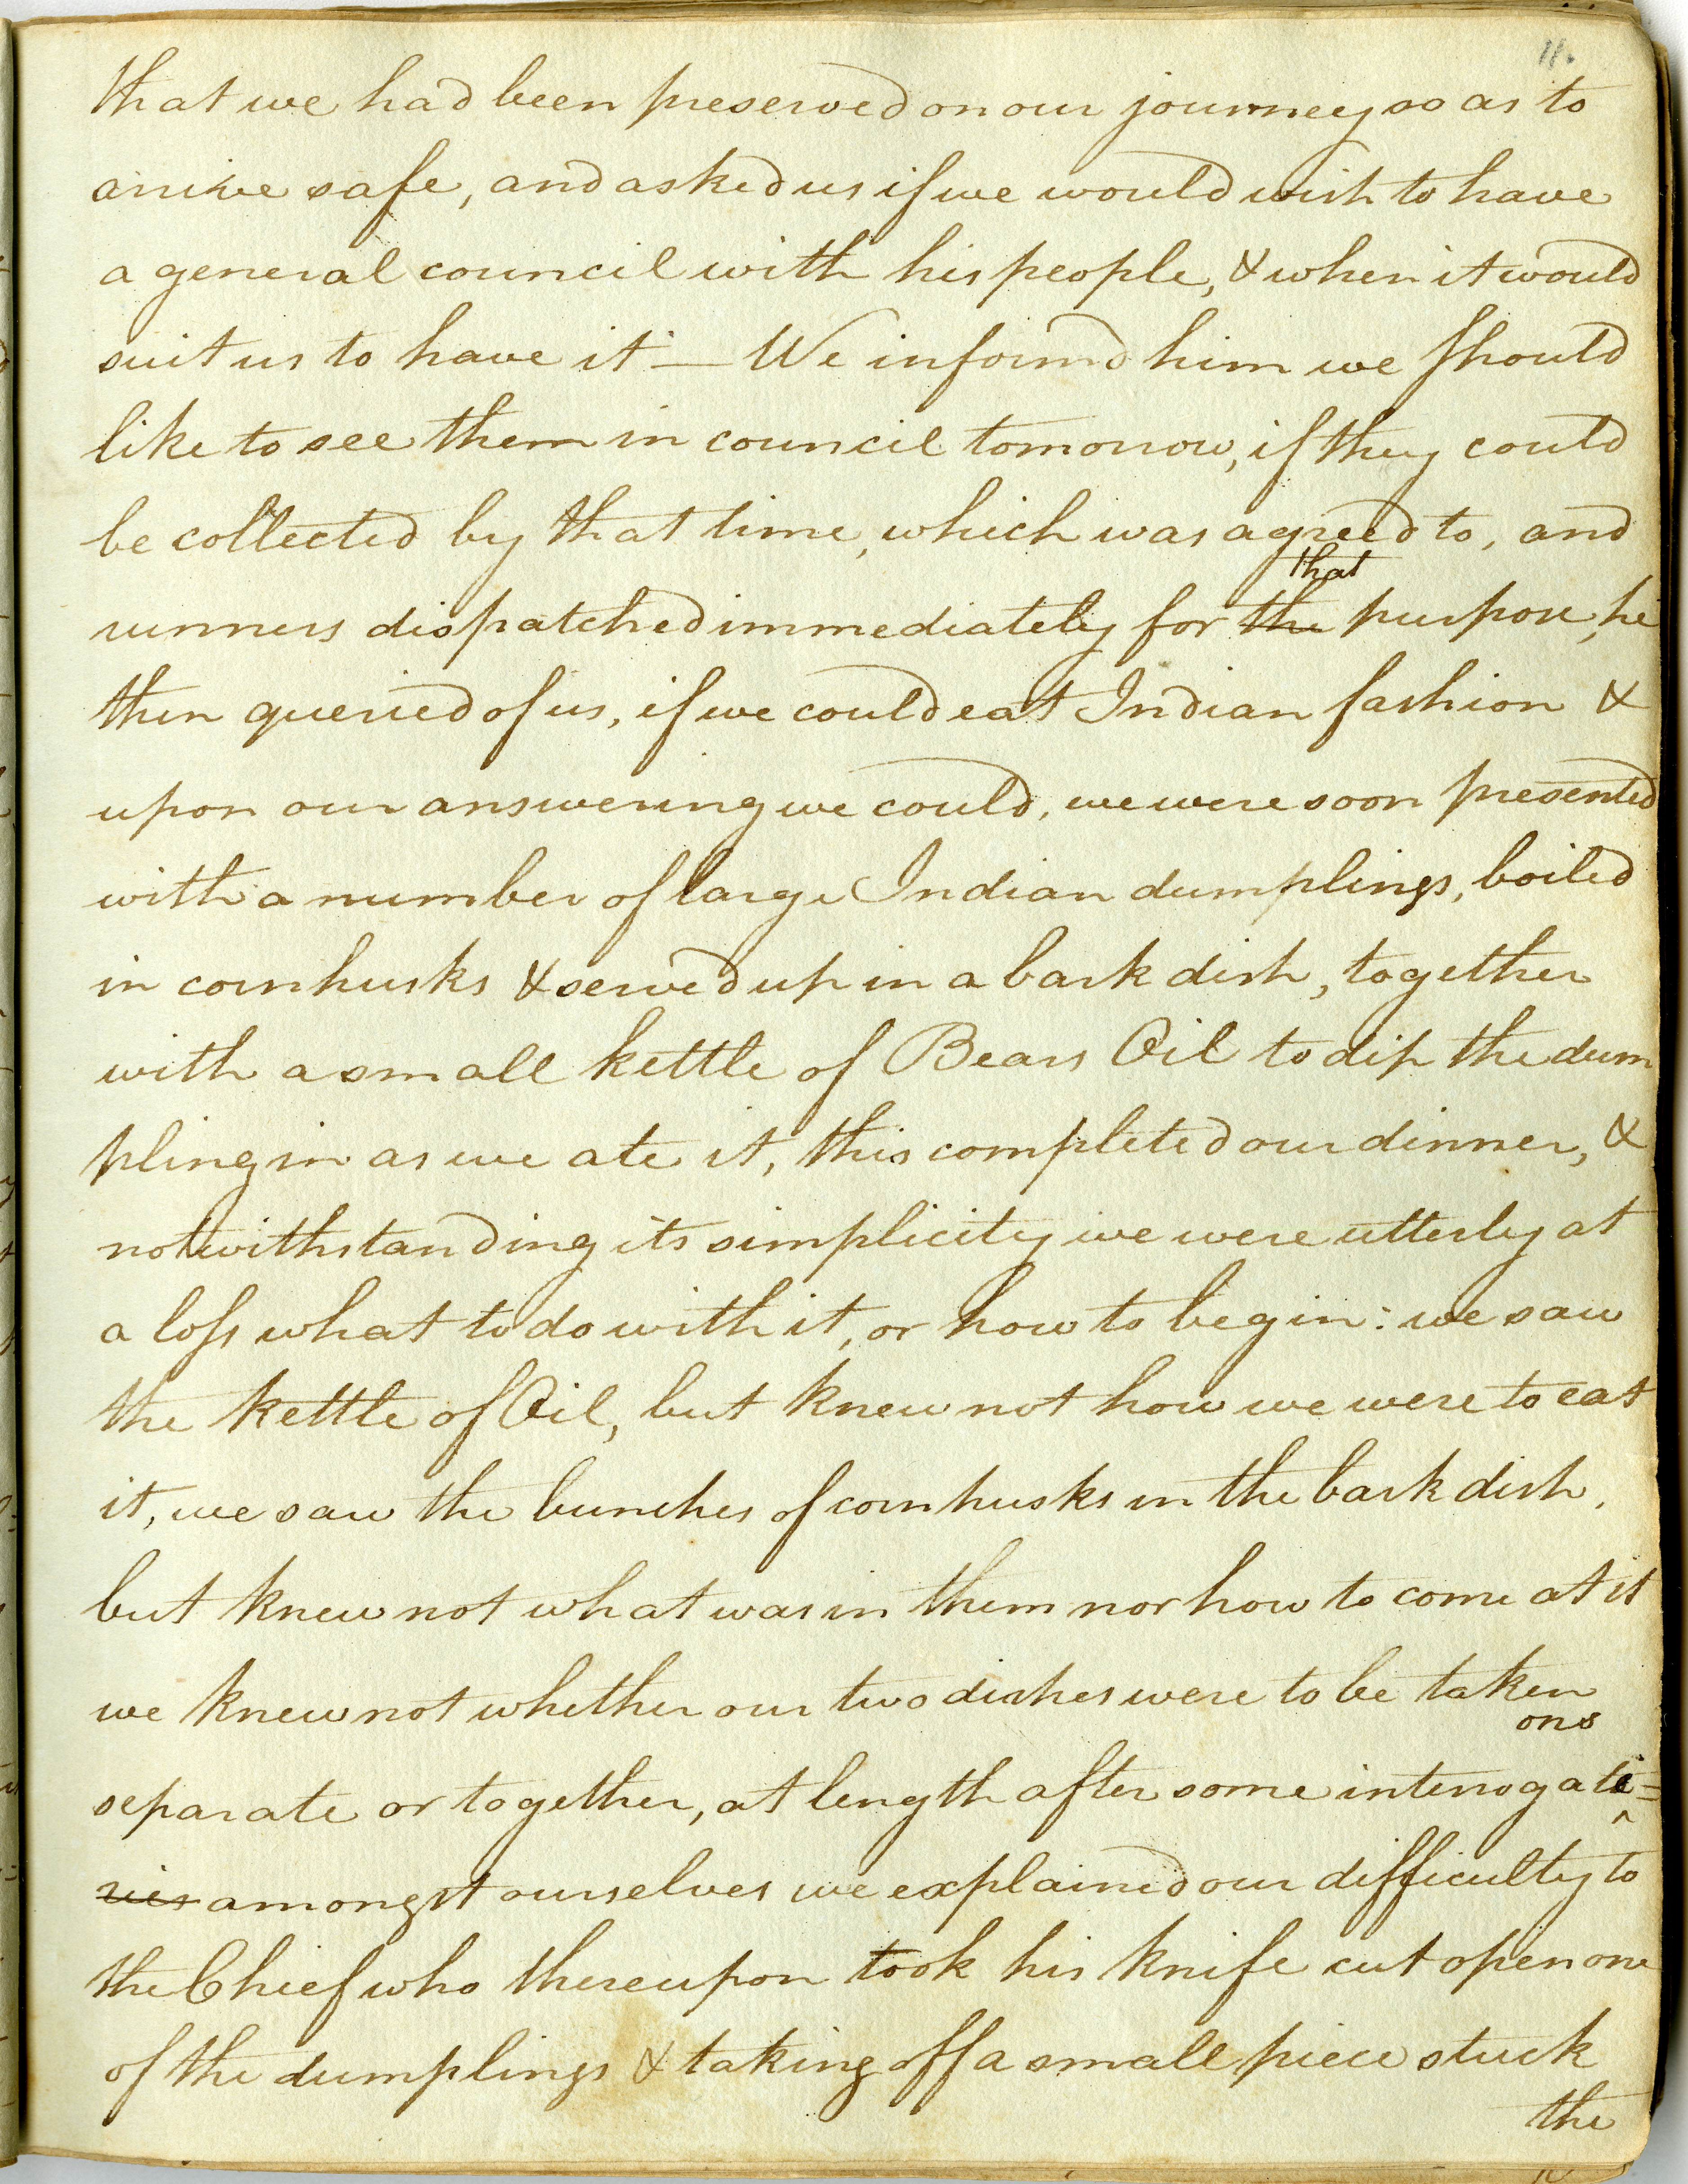 11.
that we had been preserved on our journey so as to
arrive safe, and asked us if we would wish to have
a general council with his people, & when it would
suit us to have it — We inform'd him we should
like to see them in council tomorrow, if they could
be collected by that time, which was agreed to, and
that
runners dispatched immediately for the purpose, he
then queried of us, if we could eat Indian fashion &
upon our answering we could, we were soon presented
with a number of large Indian dumplings, boiled
in cornhusks & served up in a bark dish, together
with a small kettle of Bears Oil to dip the dum
pling in as we ate it, this completed our dinner, &
notwithstanding its simplicity we were utterly at
a loss what to do with it, or how to begin: we saw
the kettle of Oil, but knew not how we were to eat
it, we saw the bunches of cornhusks in the bark dish,
but knew not what was in them nor how to come at it
we knew not whether our two dishes were to be taken
ons
separate or together, at length after some interrogati=
ries amongst ourselves we explained our difficulty to
the Chief who thereupon took his knife cut open one
of the dumplings & taking off a small piece stuck
the